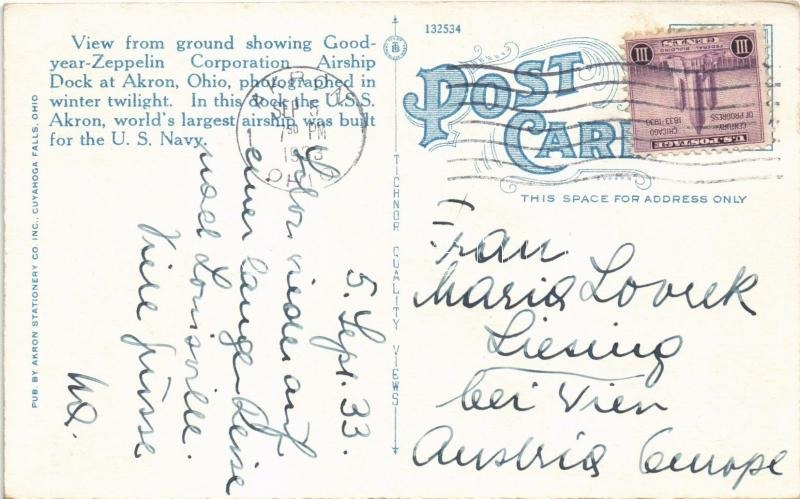 View from ground showing Good-
year-Zeppelin Corporation Airship
Dock at Akron, Ohio, photographed in
winter twilight. In this dock the U.S.S.
Akron, world's largest airship was built
for the U. S. Navy.
PUB. BY AKRON STATIONERY CO. INC., CUYAHOGA FALLS, OHIO
TICHNOR QUALITY VIEWS
132534
POST
CARD
THIS SPACE FOR ADDRESS ONLY
U.S. POSTAGE
CENTURY OF PROGRESS
CHICAGO
1833-1933
FEDERAL BUILDING
III CENTS III
AKRON
SEP 5
PM
OHIO
5. Sept. 33.
wieder auf
einer langen Reise
nach Louisville.
Viele Grüsse
Frau
Maria Lovrek
Liesing
bei Wien
Austria Europe